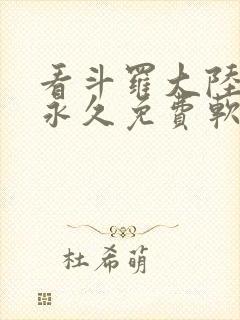 看斗羅大陸
永久免費軟
杜希萌